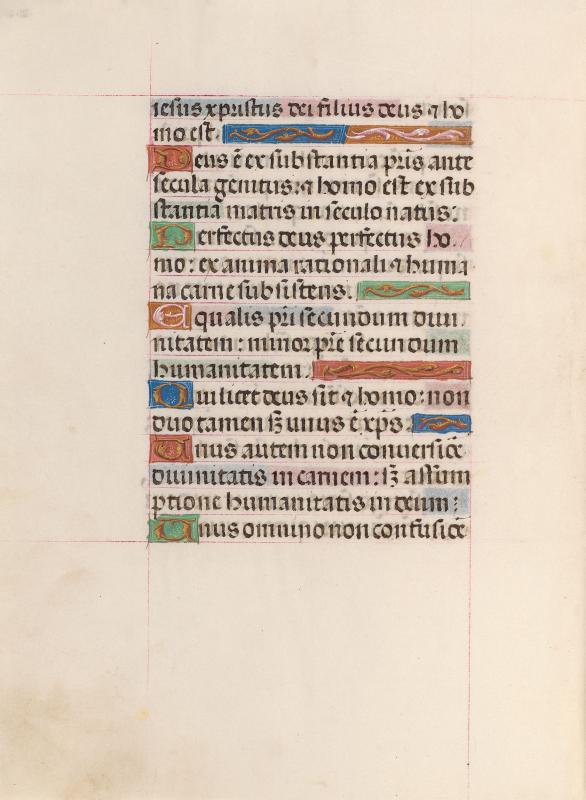 iesus xpristus dei filius deus ⁊ ho
mo est.
Deus ē ex substantia p̄ris ante
secula genitus: ⁊ homo est ex sub
stantia matris in seculo natus:
Perfectus deus perfectus ho.
mo: ex anima rationali ⁊ huma
na carne subsistens.
Equalis pr̄i secundum diui.
nitatem: minor pr̄e secundum
humanitatem.
Qui licet deus sit ⁊ homo: non
duo tamen sꝫ unus ē xp̄s.
Unus autem non conuersiōe
diuinitatis in carnem: sꝫ assum
ptione humanitatis in deum:
Unus omnino non confusiōe